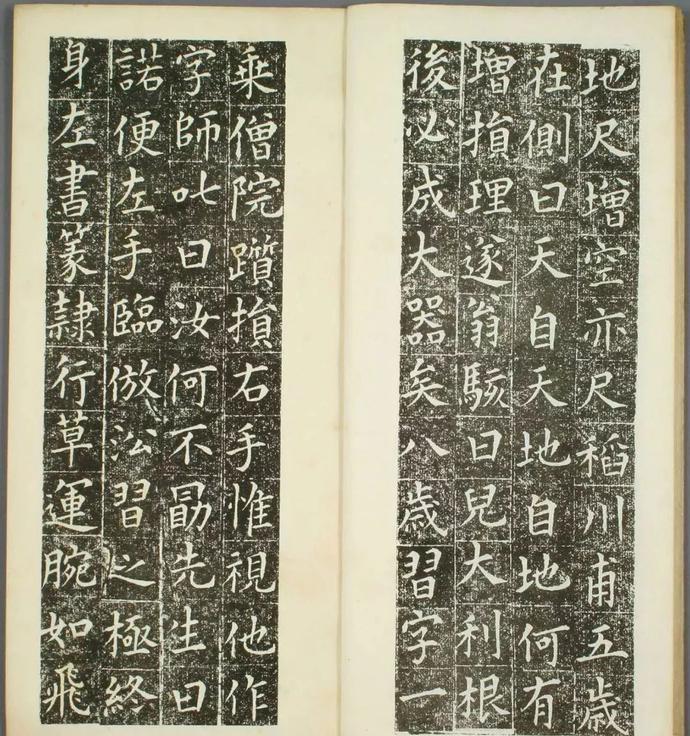 地尺增空亦尺稻川甫五歲
在側曰天自天地自地何有
增損理遂翁駭曰兒大利根
後必成大器矣八歲習字一
乗僧院躓損右手惟視他作
字師叱曰汝何不勗先生曰
諾便左手臨倣㳂習之極終
身左書篆隷行草運腕如飛